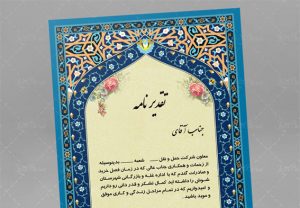 تقدیر نامه
جناب آقای
معاون شرکت حمل و نقل ــــــ شعبه ــــــ بدینوسیله
از زحمات و همکاری جناب عالی که در زمان فصل خرید
و صادرات گندم که با اداره غله و بازرگانی شهرستان
شوش را داشته اید کمال تشکر و قدر دانی رو داریم
و امیدواریم که در تمام مراحل زندگی و کاری موفق
و موید باشید.